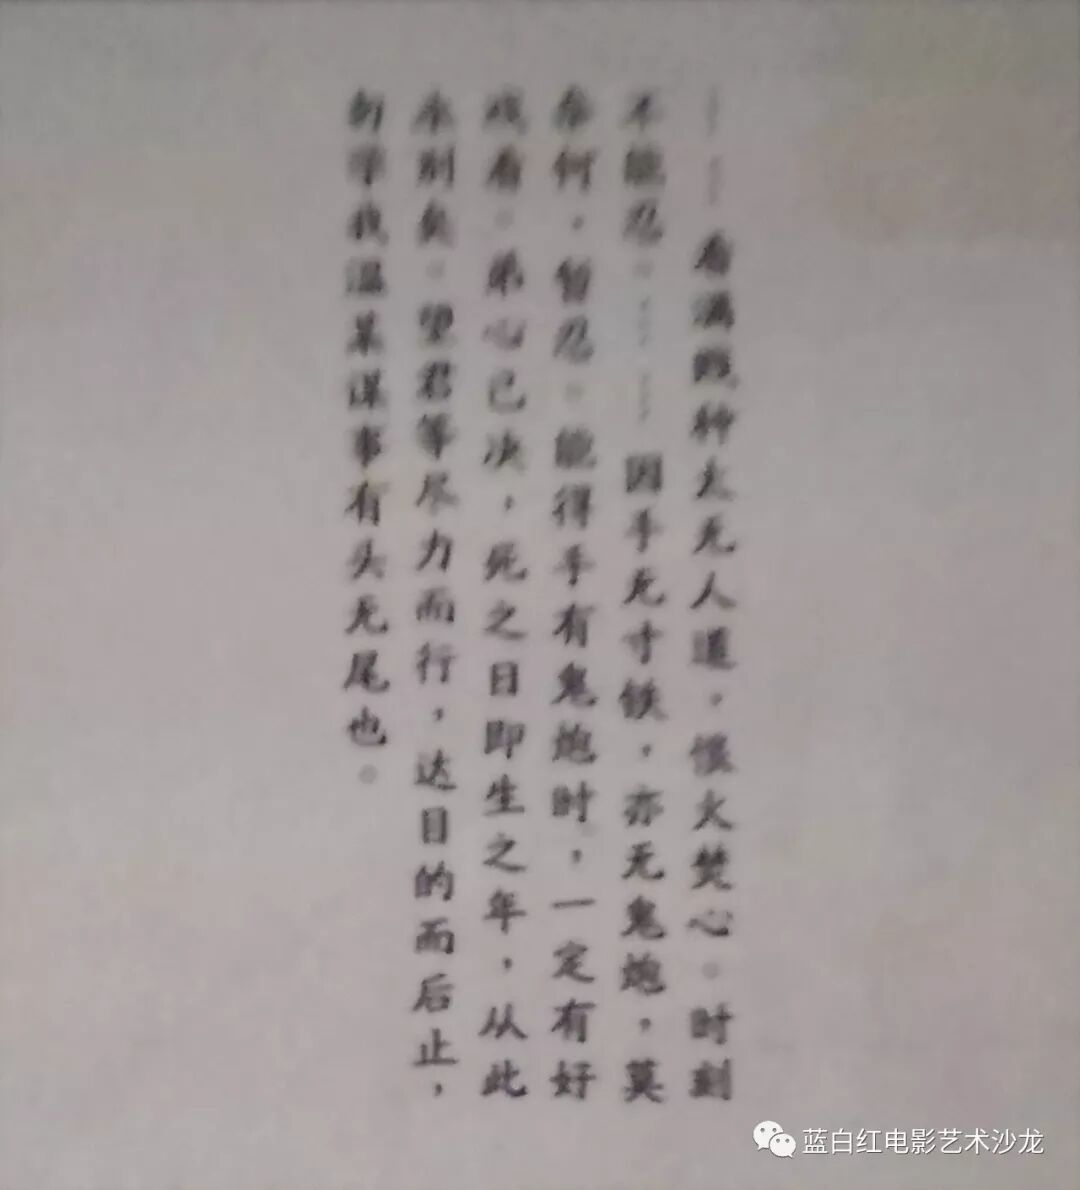 ……看满贱种太无人道，恨火焚心。时刻
不能忍。……因手无寸铁，亦无鬼炮，莫
奈何，暂忍。能得手有鬼炮时，一定有好
戏看。弟心已决，死之日即生之年，从此
永别矣。望君等尽力而行，达目的而后止，
勿学我温某谋事有头无尾也。
蓝白红电影艺术沙龙